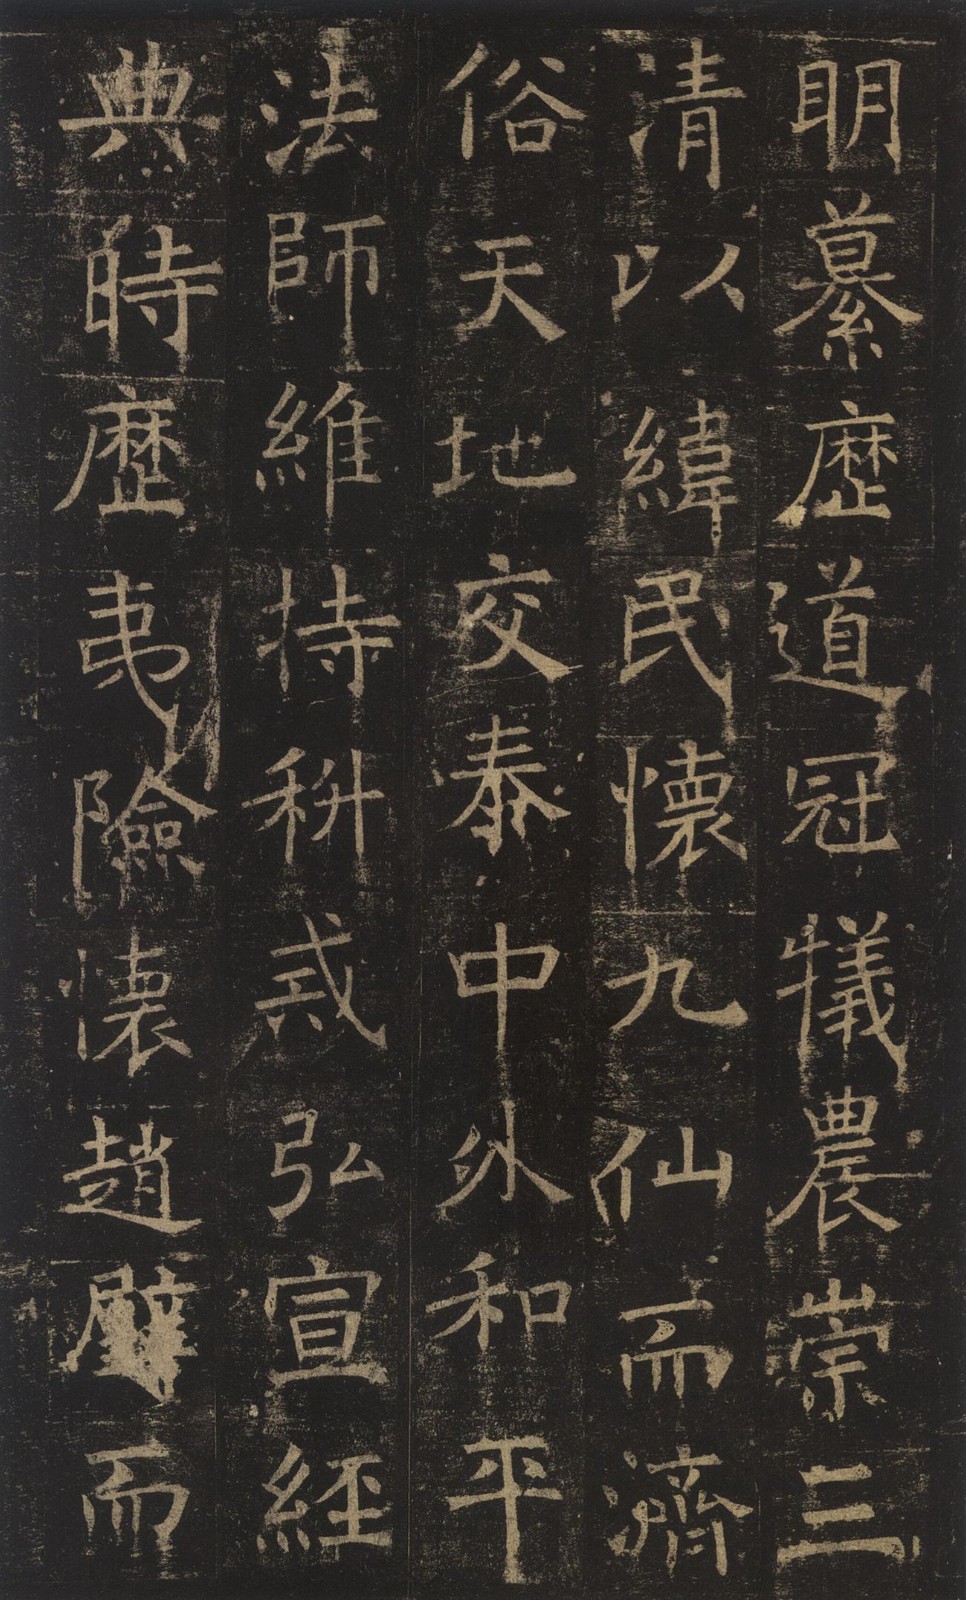 明纂歷道冠犠農崇三
清以緯民懷九仙而濟
俗天地交泰中外和平
法師維持科戒弘宣經
典時歷夷險懷趙璧而